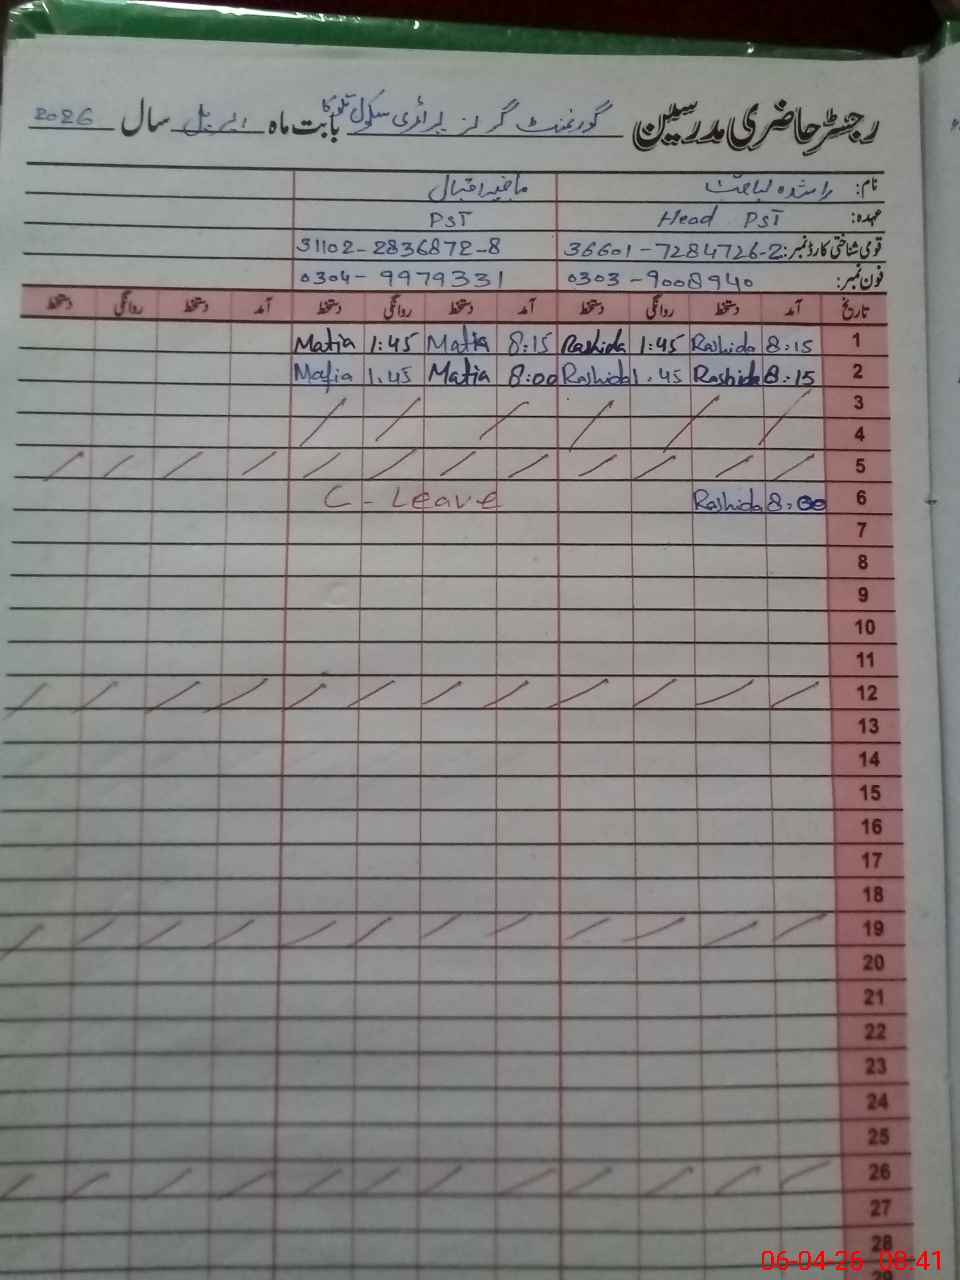 رجسٹر حاضری مدرسین گورنمنٹ گرلز پرائمری سکول بابت ماہ اپریل سال 2026
نام: راشدہ مافیہ اقبال
عہدہ: Head PST PST
قومی شناختی کارڈ نمبر: 36601-7284726-2 31102-2836872-8
فون نمبر: 0303-9008940 0304-9979331
تاریخ آمد دستخط روانگی دستخط آمد دستخط روانگی دستخط آمد دستخط روانگی دستخط
1 8:15 Rashida 1:45 Rashida 8:15 Mafia 1:45 Mafia
2 8:15 Rashida 1.45 Rashida 8:00 Mafia 1.45 Mafia
3
4
5
6 8:00 Rashida C-Leave
7
8
9
10
11
12
13
14
15
16
17
18
19
20
21
22
23
24
25
26
27
28
06-04-26 08:41